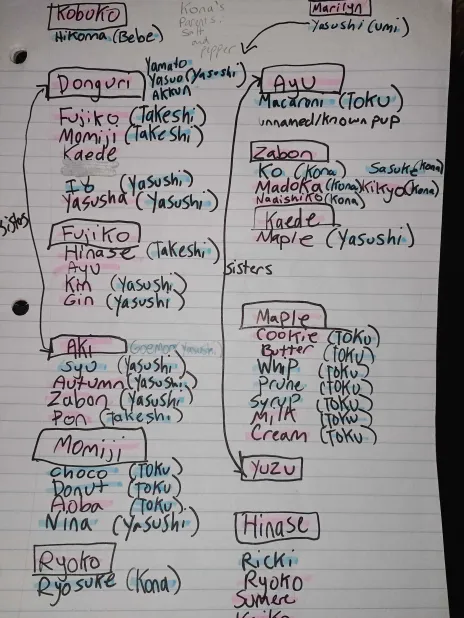 Kobuko
Hikoma (Bebe)
Kona's
Parents:
Salt
and
pepper
Marilyn
Yasushi (umi)
Donguri
Yamato
Yasuo (Yasushi)
Akkun
Fujiko (Takeshi)
Momiji (Takeshi)
Kaede
(Yasushi)
Yasusha (Yasushi)
Sisters
Fujiko
Hinase (Takeshi)
Ayu
Kin (Yasushi)
Gin (Yasushi)
Aki
Syu (Yasushi)
Autumn (Yasushi)
Zabon (Yasushi)
Pon (Takeshi)
Momiji
Choco (Toku)
Donut (Toku)
Aoba (Toku)
Nina (Yasushi)
Ryoko
Ryosuke (Kona)
Ayu
Macaroni (Toku)
unnamed/known pup
Zabon
Ko (Kona) Sasuke (Kona)
Madoka (Kona) Kikyo (Kona)
Nadishiko (Kona)
Kaede
Maple (Yasushi)
sisters
Maple
Cookie (Toku)
Butter (Toku)
Whip (Toku)
Prune (Toku)
Syrup (Toku)
Milk (Toku)
Cream (Toku)
Yuzu
Hinase
Ricki
Ryoko
Sumere